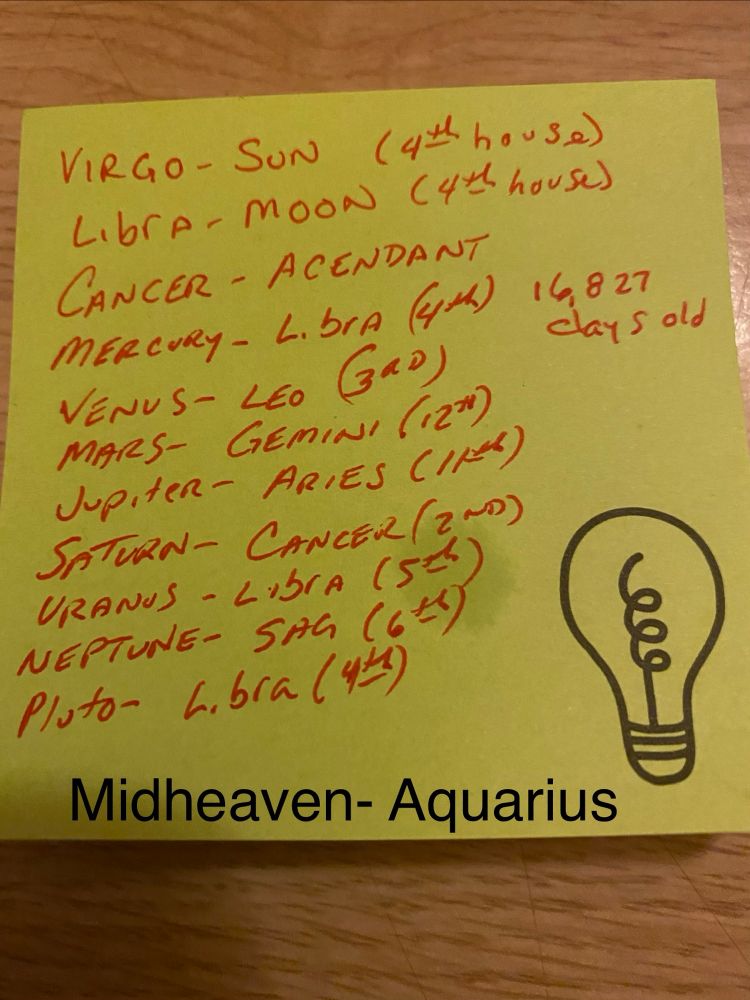 VIRGO - SUN (4th house)
Libra - MOON (4th house)
CANCER - ACENDANT
MERCURY - Libra (4th)
16,827
days old
VENUS - LEO (3RD)
MARS - GEMINI (12TH)
Jupiter - ARIES (11th)
SATURN - CANCER (2ND)
URANUS - Libra (5th)
NEPTUNE - SAG (6th)
Pluto - Libra (4th)
Midheaven- Aquarius